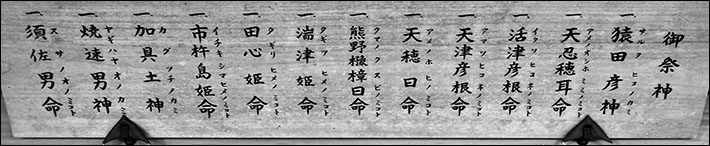 御祭神
一 猿田彦神 サルタヒコノカミ
一 天忍穂耳命 アメノオシホミミノミコト
一 活津彦根命 イクツヒコネノミコト
一 天津彦根命 アマツヒコネノミコト
一 天穂日命 アメノホヒノミコト
一 熊野櫲樟日命 クマノクスビノミコト
一 湍津姫命 タギツヒメノミコト
一 田心姫命 タギリヒメノミコト
一 市杵島姫命 イチキシマヒメノミコト
一 加具土神 カグツチノカミ
一 焼速男神 ヤギハヤオノカミ
一 須佐男命 スサノオノミコト